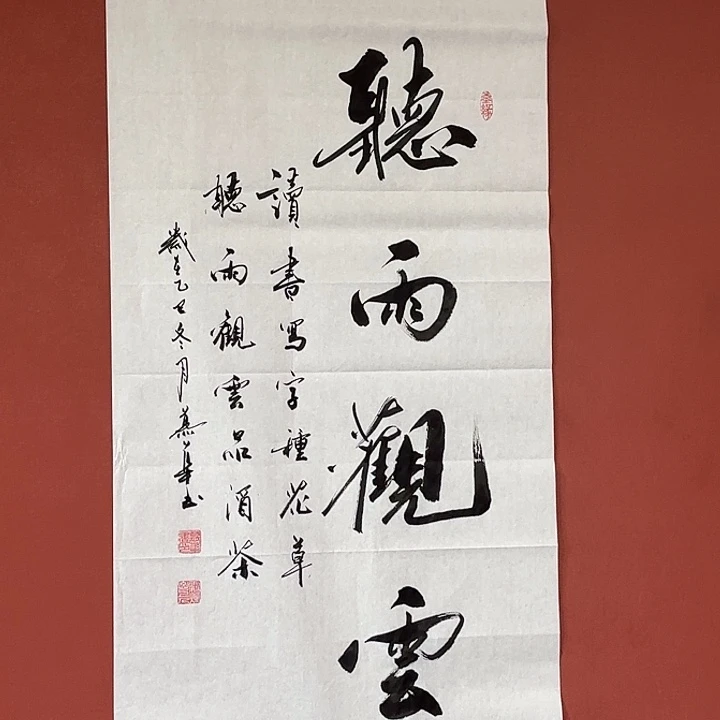 聽雨觀雲
讀書寫字種花草
聽雨觀雲品酒茶
歲在乙巳冬月